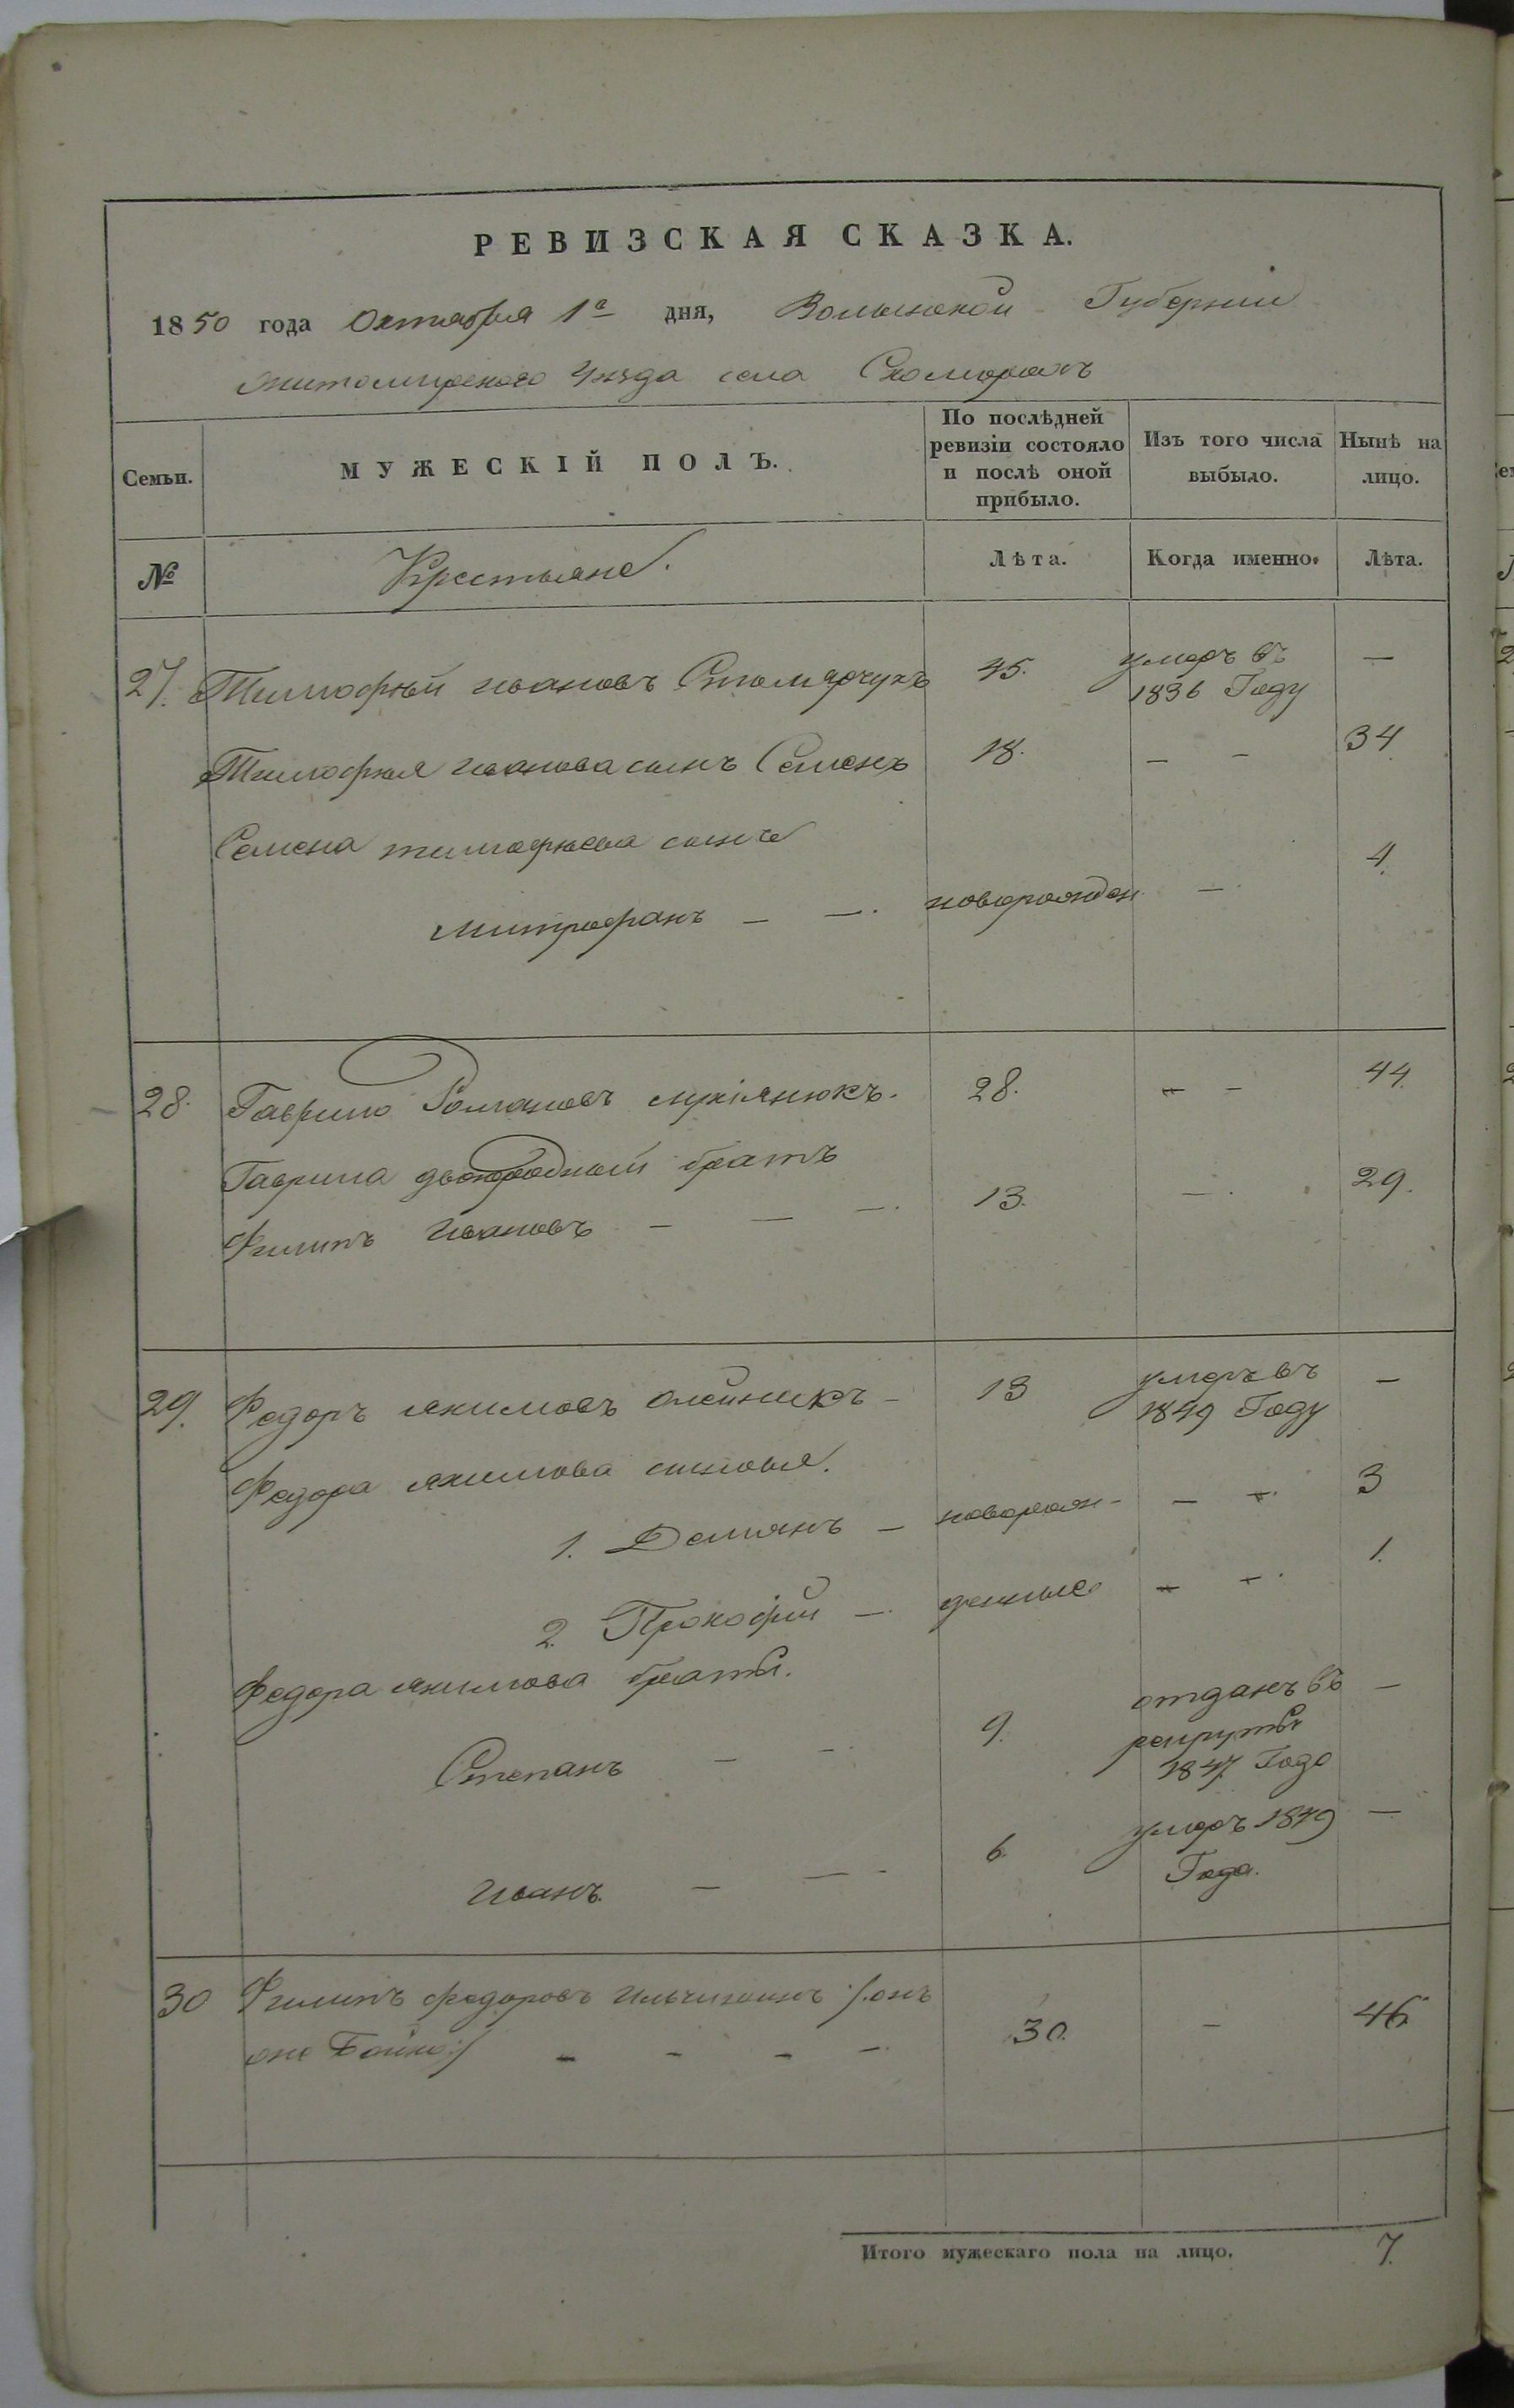 РЕВИЗСКАЯ СКАЗКА.
1850 года Октября 1го дня, Волынской Губернии
житомирского Уезда села Скоморохъ
Семьи.
МУЖЕСКІЙ ПОЛЪ.
По послѣдней ревизіи состояло и послѣ оной прибыло.
Изъ того числа выбыло.
Нынѣ на лицо.
№ Крестьяне. Лѣта. Когда именно. Лѣта.
27. Тимофей ивановъ Столярчукъ 45. умеръ въ —
1836 Году
Тимофея иванова сынъ Семенъ 18. — — 34
Семена тимофеева сынъ
митрофанъ — — новорожден — 4.
28. Гаврило Романовъ лукіянюкъ. 28. — — 44.
Гаврила двоюродный братъ
Филипъ ивановъ — — — 13. — 29.
29. Федоръ якимовъ олейникъ — 13 умеръ въ —
1849 Году
Федора якимова сыновья.
1. Демянъ — новорож- — — 3
2. Прокофий — денные — — 1.
Федора якимова братья.
Степанъ — — 9. отданъ въ —
рекруты
1847 Года
иванъ — — — 6. умеръ 1849 —
Года.
30 Филипъ федоровъ /:онъ
оне Бойко:/ — — — — 30. — 46
Итого мужескаго пола на лицо. 7.